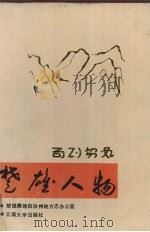 楚雄人物
楚雄彝族自治州地方志办公室
云南大学出版社